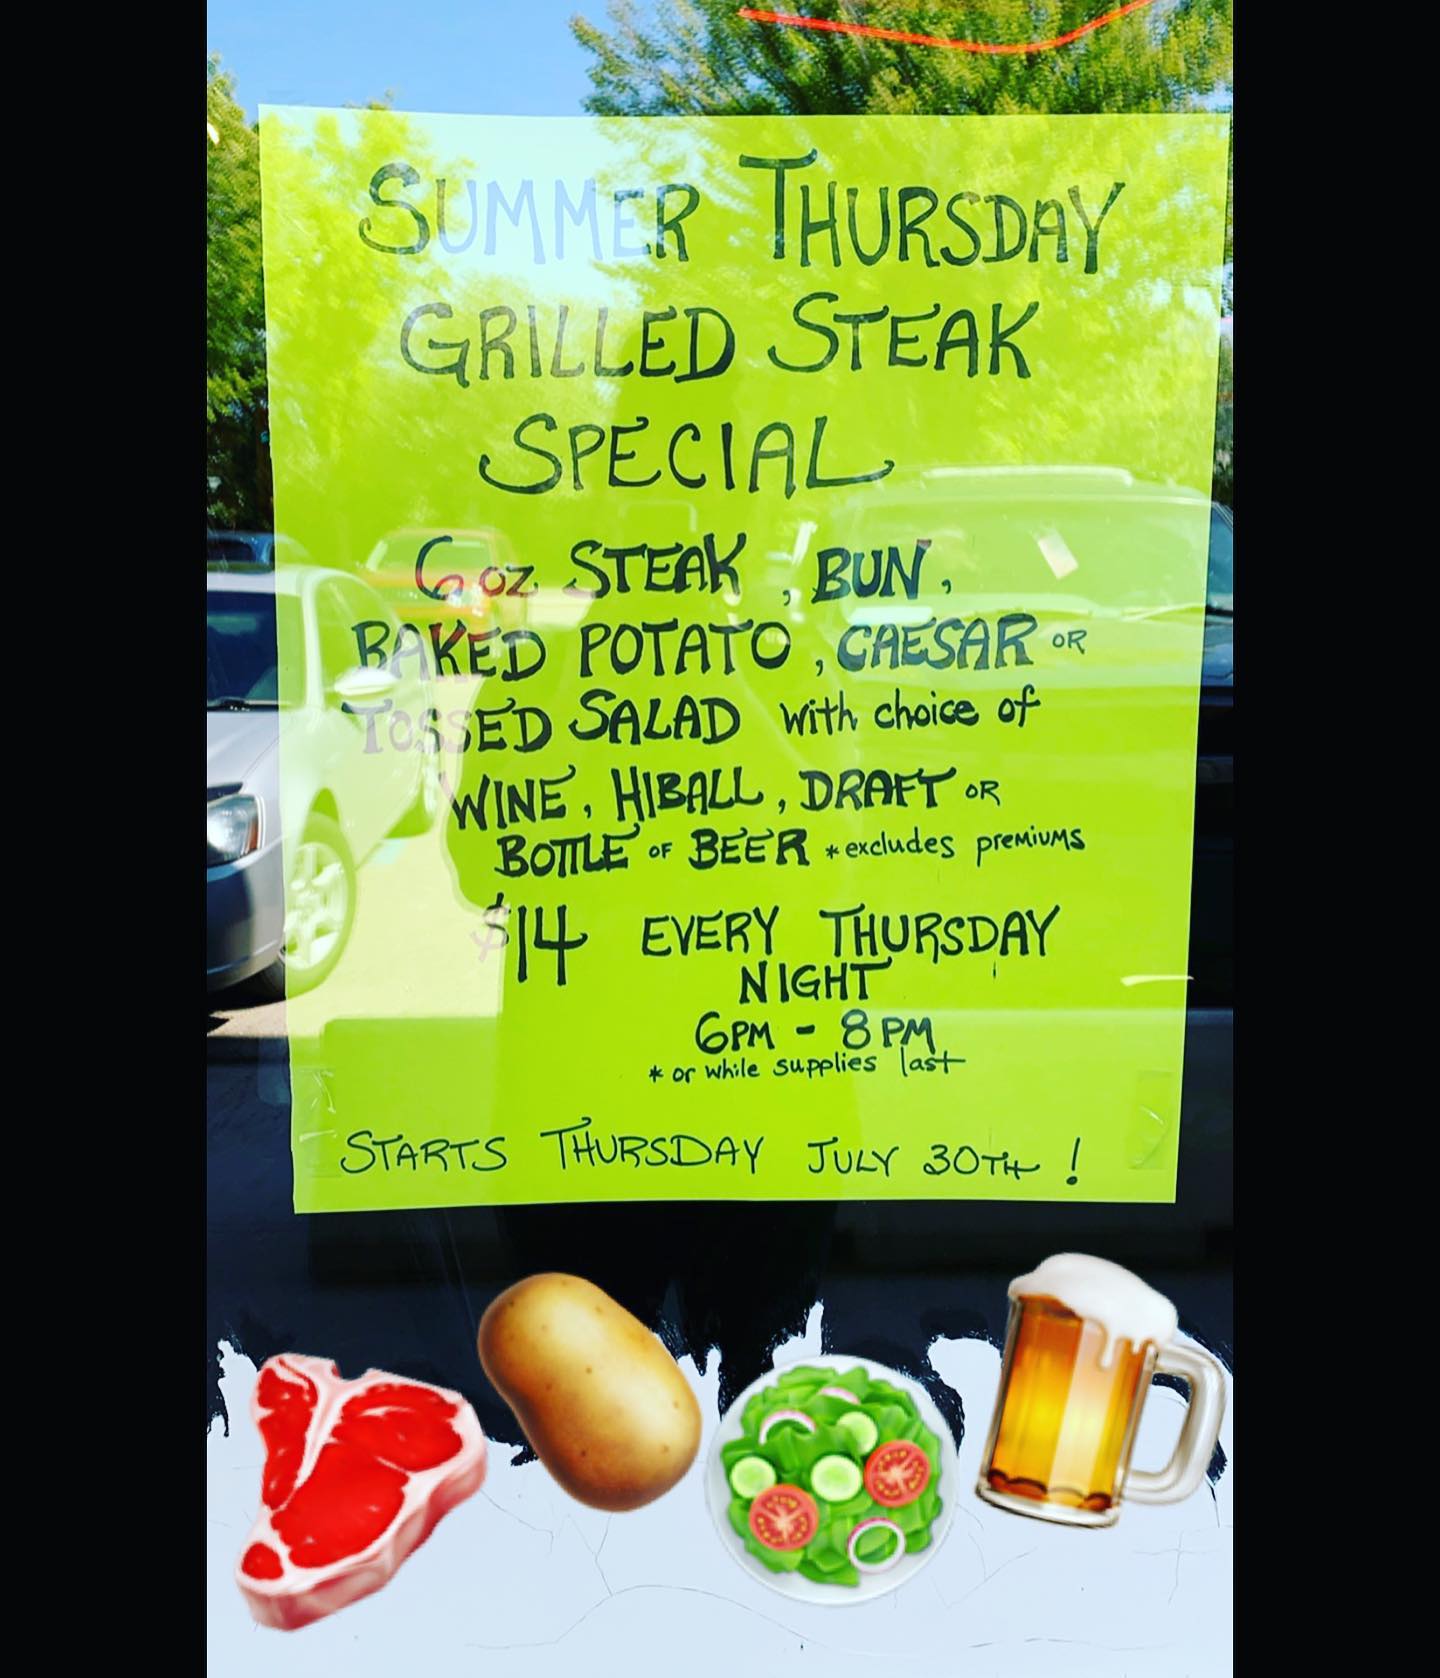 SUMMER THURSDAY
GRILLED STEAK
SPECIAL
6 oz STEAK, BUN,
BAKED POTATO, CAESAR OR
TOSSED SALAD with choice of
WINE, HIBALL, DRAFT OR
BOTTLE OF BEER *excludes premiums
$14 EVERY THURSDAY
NIGHT
6PM - 8PM
* or while supplies last
STARTS THURSDAY JULY 30TH !